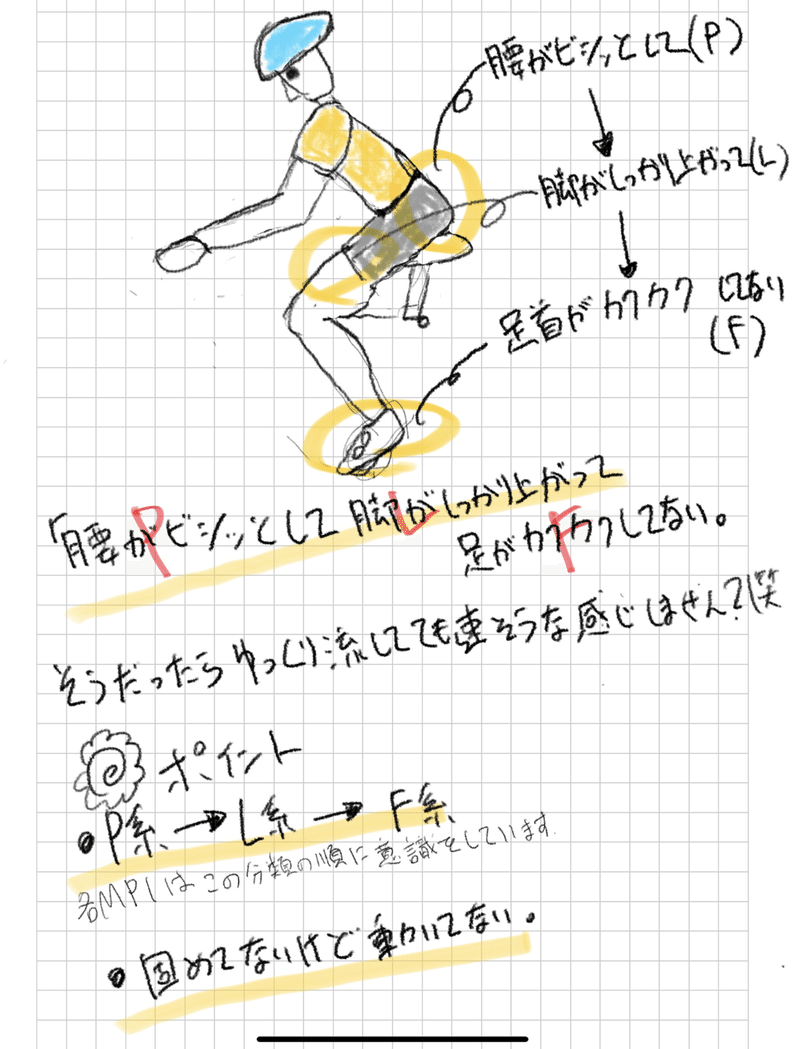 腰がビシッとして(P)
脚がしっかり上がって(L)
足首がカクカクしてない
(F)
「腰がビシッとして脚がしっかり上がって
足がカクカクしてない。
P L F
そうだったらゆっくり流してても速そうな感じしません?(笑
ポイント
・P系→L系→F系
各MPIはこの分類の順に意識をしています.
・固めてないけど動いてない。